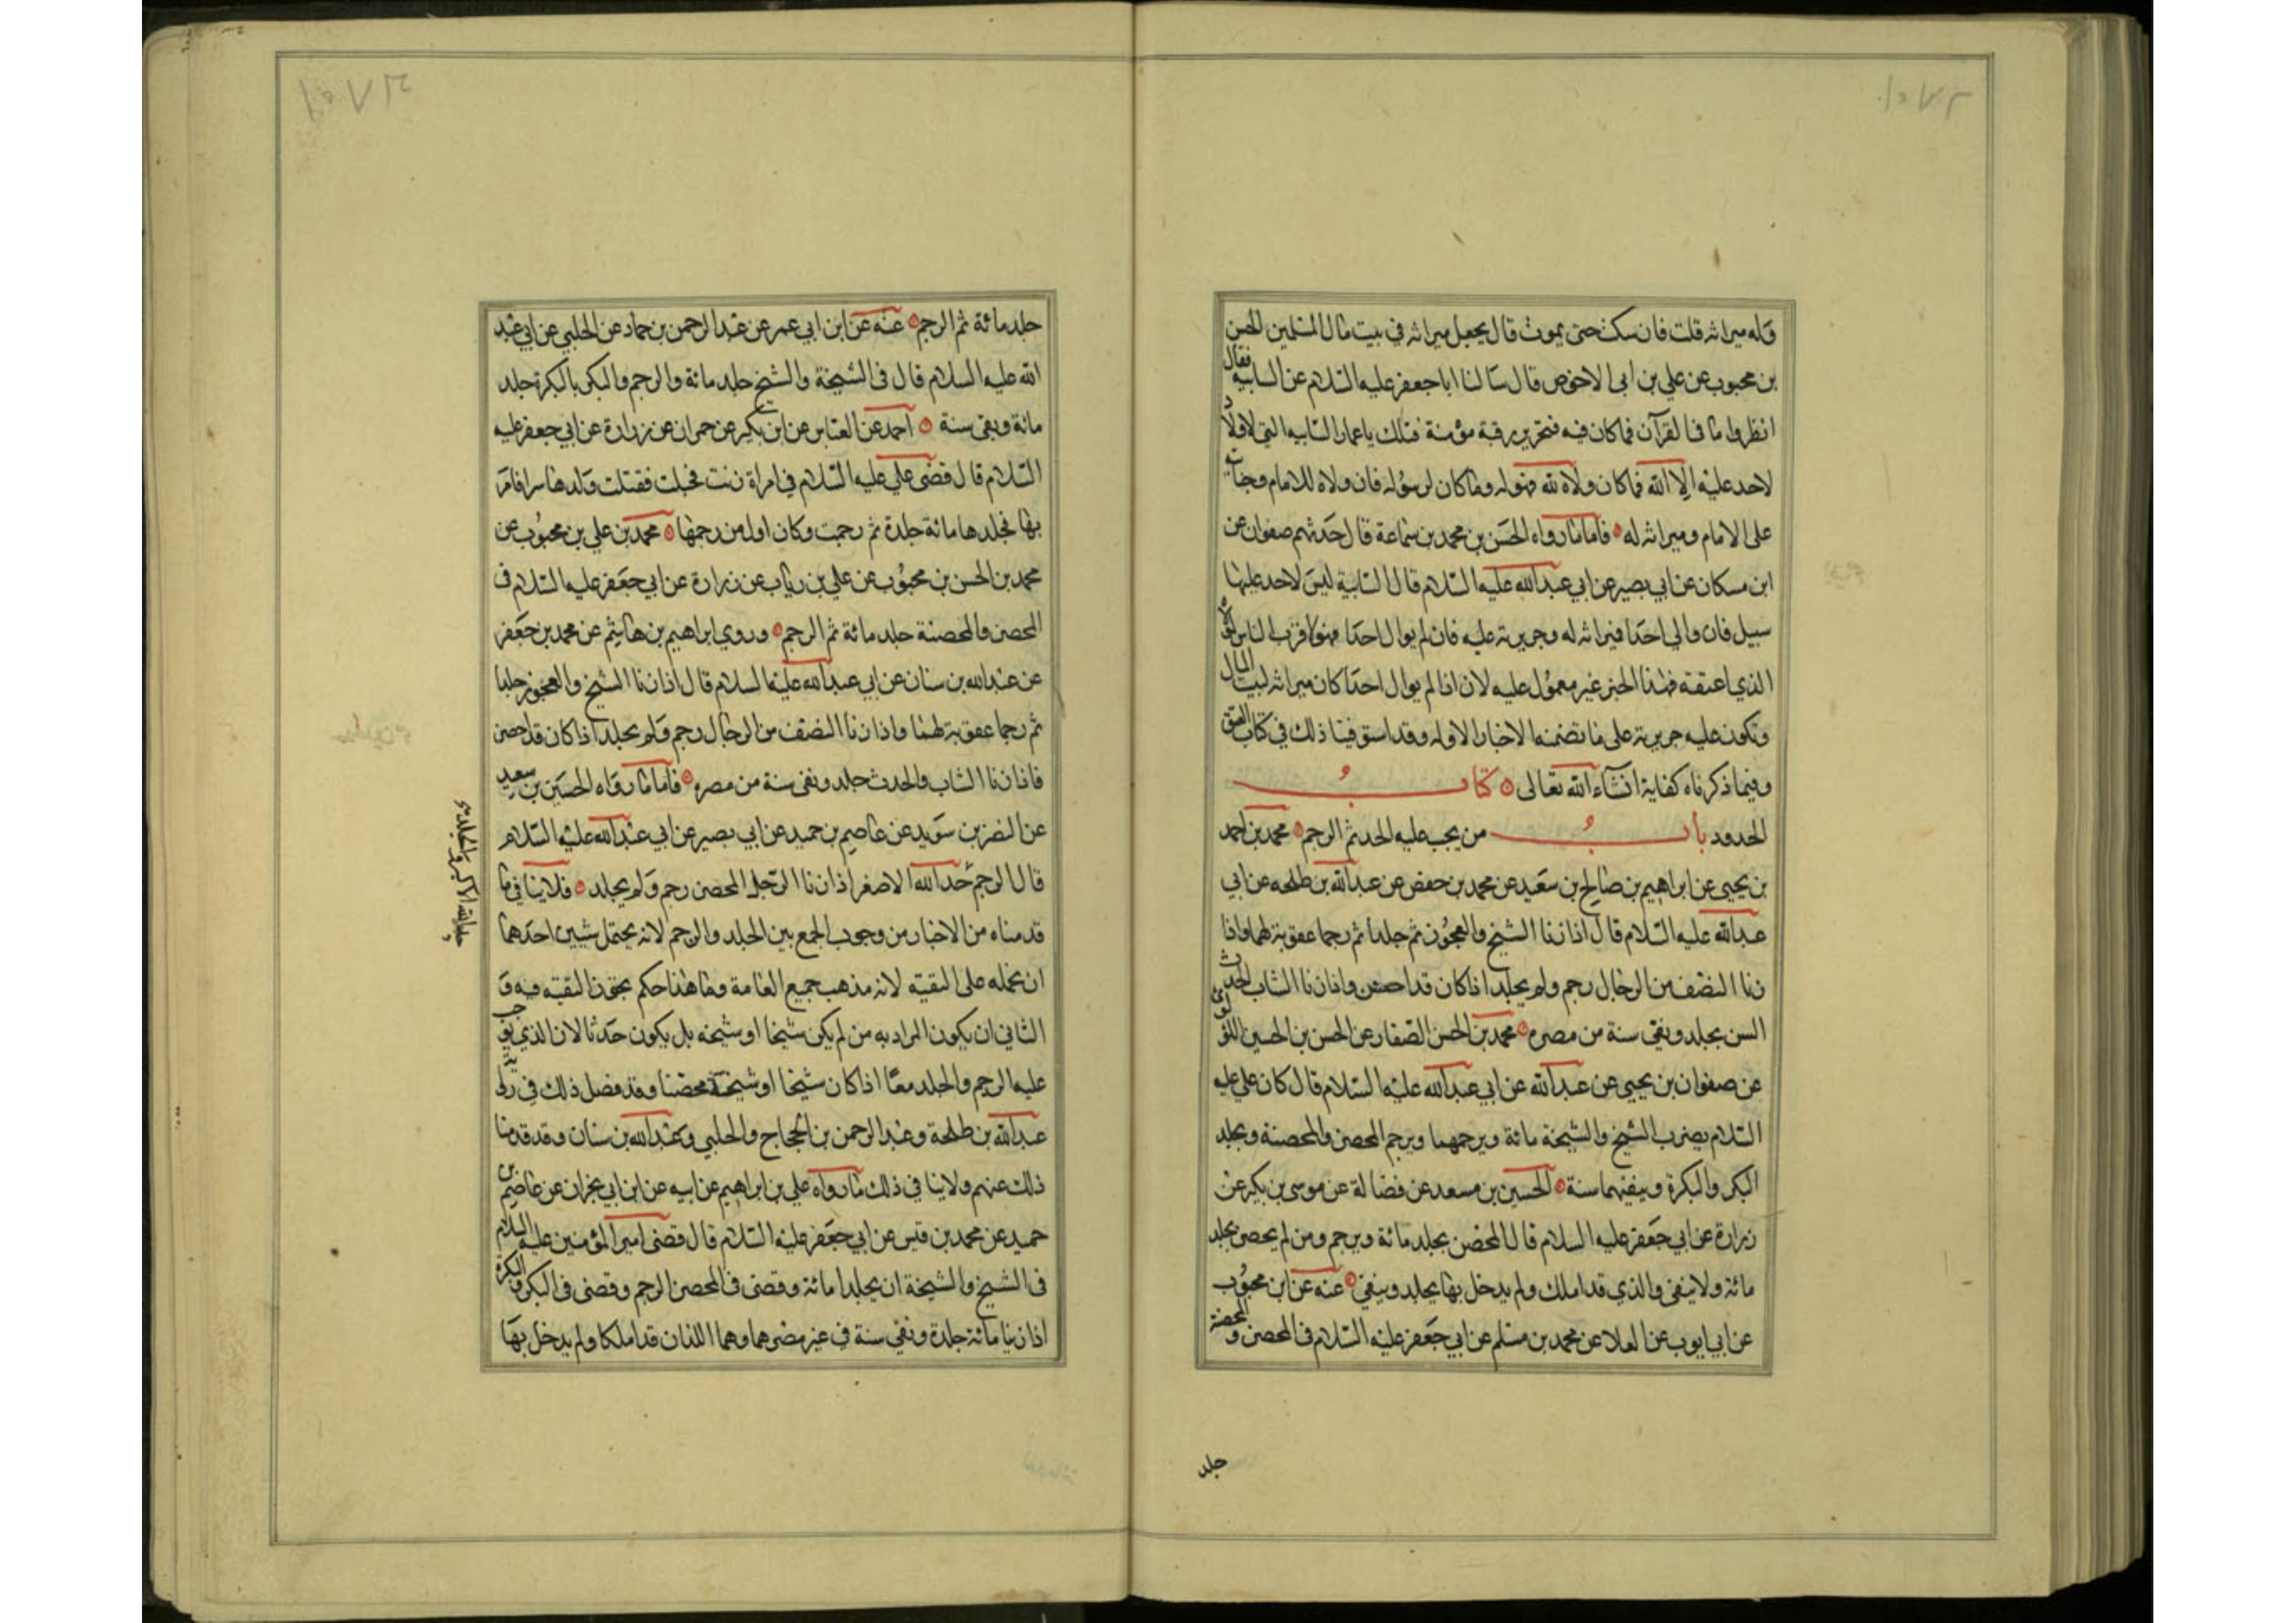 وله ميراثه قلت فان سكت حتى يموت قال يجعل ميراثه في بيت مال المسلمين الحسن
بن محبوب عن علي بن ابي الاحوص قال سالنا ابا جعفر عليه السلام عن السايبه فقال
انظروا ما في القرآن فما كان فيه فتحرير رقبة مؤمنة فتلك يا عمار السايبه التي لا ولاء
لاحد عليه الا الله فما كان ولاه لله فهو له وما كان لرسوله فان ولاه للامام وجنايته
على الامام وميراثه له فاما ما رواه الحسن بن محمد بن سماعة قال حدثهم صفوان عن
ابن مسكان عن ابي بصير عن ابي عبد الله عليه السلام قال السايبة ليس لاحد عليها
سبيل فان والى احدا فميراثه له وجريرته عليه فان لم يوال احدا فهو لاقرب الناس لمولاه
الذي اعتقه فهذا الخبر غير معمول عليه لان اذا لم يوال احدا كان ميراثه لبيت المال
وتكون عليه جريرته على ما تضمنه الاخبار الاوله وقد استوفينا ذلك في كتاب العتق
وفيما ذكرناه كفاية انشاء الله تعالى كتاب
الحدود باب من يجب عليه الحد ثم الرجم محمد بن احمد
بن يحيى عن ابراهيم بن صالح بن سعيد عن محمد بن حفص عن عبد الله بن طلحه عن ابي
عبد الله عليه السلام قال اذا زنا الشيخ والعجوز ثم جلدا ثم رجما عقوبة لهما واذا
زنا النصف من الرجال رجم ولم يجلد اذا كان قد احصن واذا زنا الشاب الحدث
السن يجلد ونفي سنة من مصره محمد بن الحسن الصفار عن الحسن بن الحسين اللؤلؤي
عن صفوان بن يحيى عن عبد الله عن ابي عبد الله عليه السلام قال كان علي عليه
السلام يضرب الشيخ والشيخة مائة ويرجمهما ويرجم المحصن والمحصنة ويجلد
البكر والبكرة وينفيهما سنة الحسين بن مسعد عن فضالة عن موسى بن بكير عن
زرارة عن ابي جعفر عليه السلام قال المحصن يجلد مائة ويرجم ومن لم يحصن يجلد
مائة ولا ينفى والذي قد املك ولم يدخل بها يجلد وينفي عنه عن ابن محبوب
عن ابي ايوب عن العلا عن محمد بن مسلم عن ابي جعفر عليه السلام في المحصن والمحصنة
جلد
جلد مائة ثم الرجم عنه عن ابن ابي عمر عن عبد الرحمن بن حماد عن الحلبي عن ابي عبد
الله عليه السلام قال في الشيخة والشيخ جلد مائة والرجم والبكر بالبكرة جلد
مائة ونفى سنة احمد عن العباس عن ابن بكير عن حمران عن زرارة عن ابي جعفر عليه
السلام قال قضى علي عليه السلام في امراة زنت فحبلت فقتلت ولدها سرا فامر
بها فجلدها مائة جلدة ثم رجمت وكان اول من رجمها محمد بن علي بن محبوب عن
محمد بن الحسن بن محبوب عن علي بن رياب عن زرارة عن ابي جعفر عليه السلام في
المحصن والمحصنة جلد مائة ثم الرجم وروى ابراهيم بن هاشم عن محمد بن جعفر
عن عبد الله بن سنان عن ابي عبد الله عليه السلام قال اذا زنا الشيخ والعجوز جلدا
ثم رجما عقوبة لهما واذا زنا النصف من الرجال رجم ولم يجلد اذا كان قد احصن
فاذا زنا الشاب والحدث جلد ونفى سنة من مصره فاما ما رواه الحسين بن سعيد
عن النضر بن سويد عن عاصم بن حميد عن ابي بصير عن ابي عبد الله عليه السلام
قال الرجم حد الله الاصغر اذا زنا الرجل المحصن رجم ولم يجلد فلا ينا في ما
قدمناه من الاخبار من وجوب الجمع بين الجلد والرجم لانه يحتمل شيين احدهما
ان نحمله على التقيه لانه مذهب جميع العامة وما هذا حكم يجوز التقيه فيه و
الثاني ان يكون المراد به من لم يكن شيخا او شيخه بل يكون حدثا لان الذي يوجب
عليه الرجم والجلد معا اذا كان شيخا او شيخة محصنا وقد فصل ذلك في رواية
عبد الله بن طلحة وعبد الرحمن بن الحجاج والحلبي وعبد الله بن سنان وقد قدمنا
ذلك عنهم ولا ينا في ذلك ما رواه علي بن ابراهيم عن ابيه عن ابن ابي نجران عن عاصم بن
حميد عن محمد بن قيس عن ابي جعفر عليه السلام قال قضى امير المؤمنين عليه السلام
في الشيخ والشيخة ان يجلدا مائة وقضى في المحصن الرجم وقضى في البكر والبكرة
اذا زنيا مائة جلدة ونفى سنة في غير مصرهما وهما اللذان قد املكا ولم يدخل بها
حد الله الاكبر والجلد